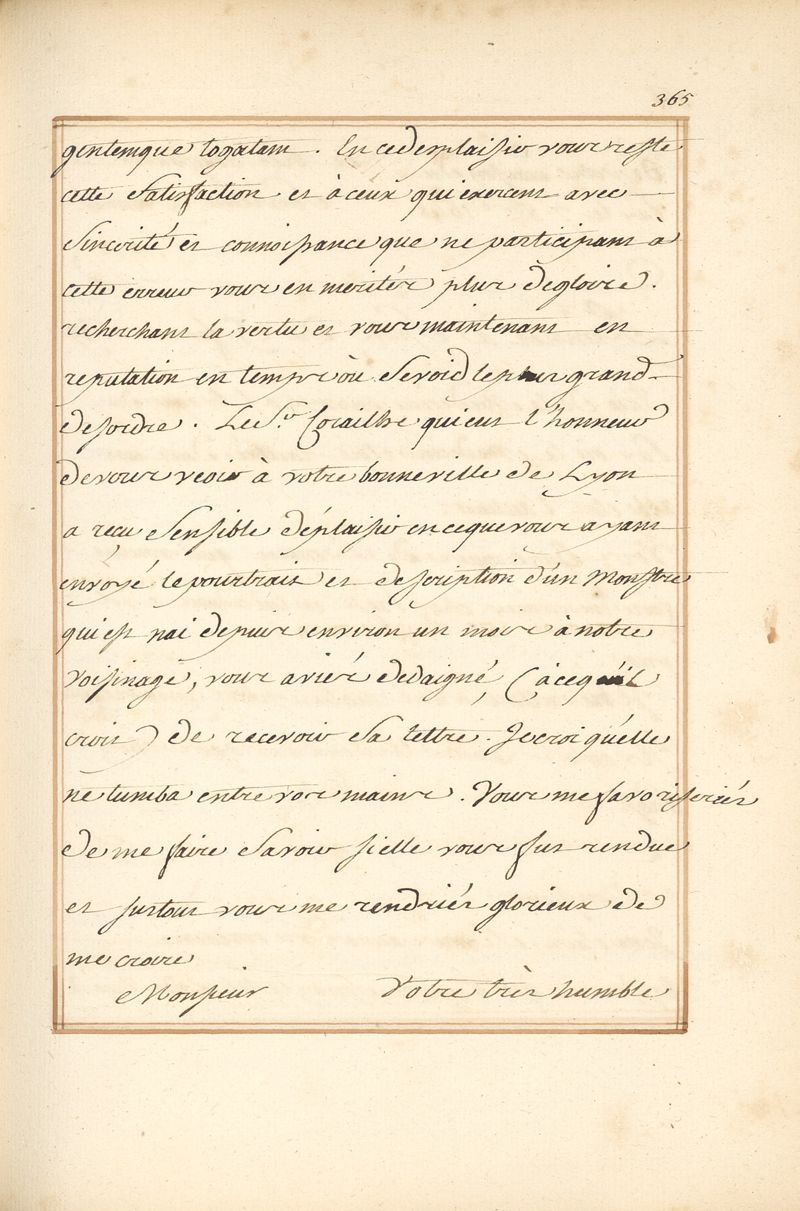 365
gentemque togatam. En ce desplaisir vous reste
cette satisfaction et à ceux qui exercent avec
sincerité et connoissance que ne participant à
cette erreur vous en merités plus de gloire.
recherchant la vertu et vous maintenant en
reputation en temps où se void le plus grand
desordre. Le Sr. Corailhe qui eut l'honneur
de vous veoir à votre bonne ville de Lyon
a reçu sensible déplaisir en ce que vous ayant
envoyé le pourtrait et description d'un Monstre
qui est nai depuis environ un mois à notre
voisinage, vous aviés dedaigné, (à ce qu'il
croit) de recevoir sa lettre. Je croi qu'elle
ne tumba entre vos mains. Vous me favoriseriés
de me faire savoir si elle vous fut rendue
et surtout vous me rendriés glorieux de
me croire
Monsieur Votre très humble